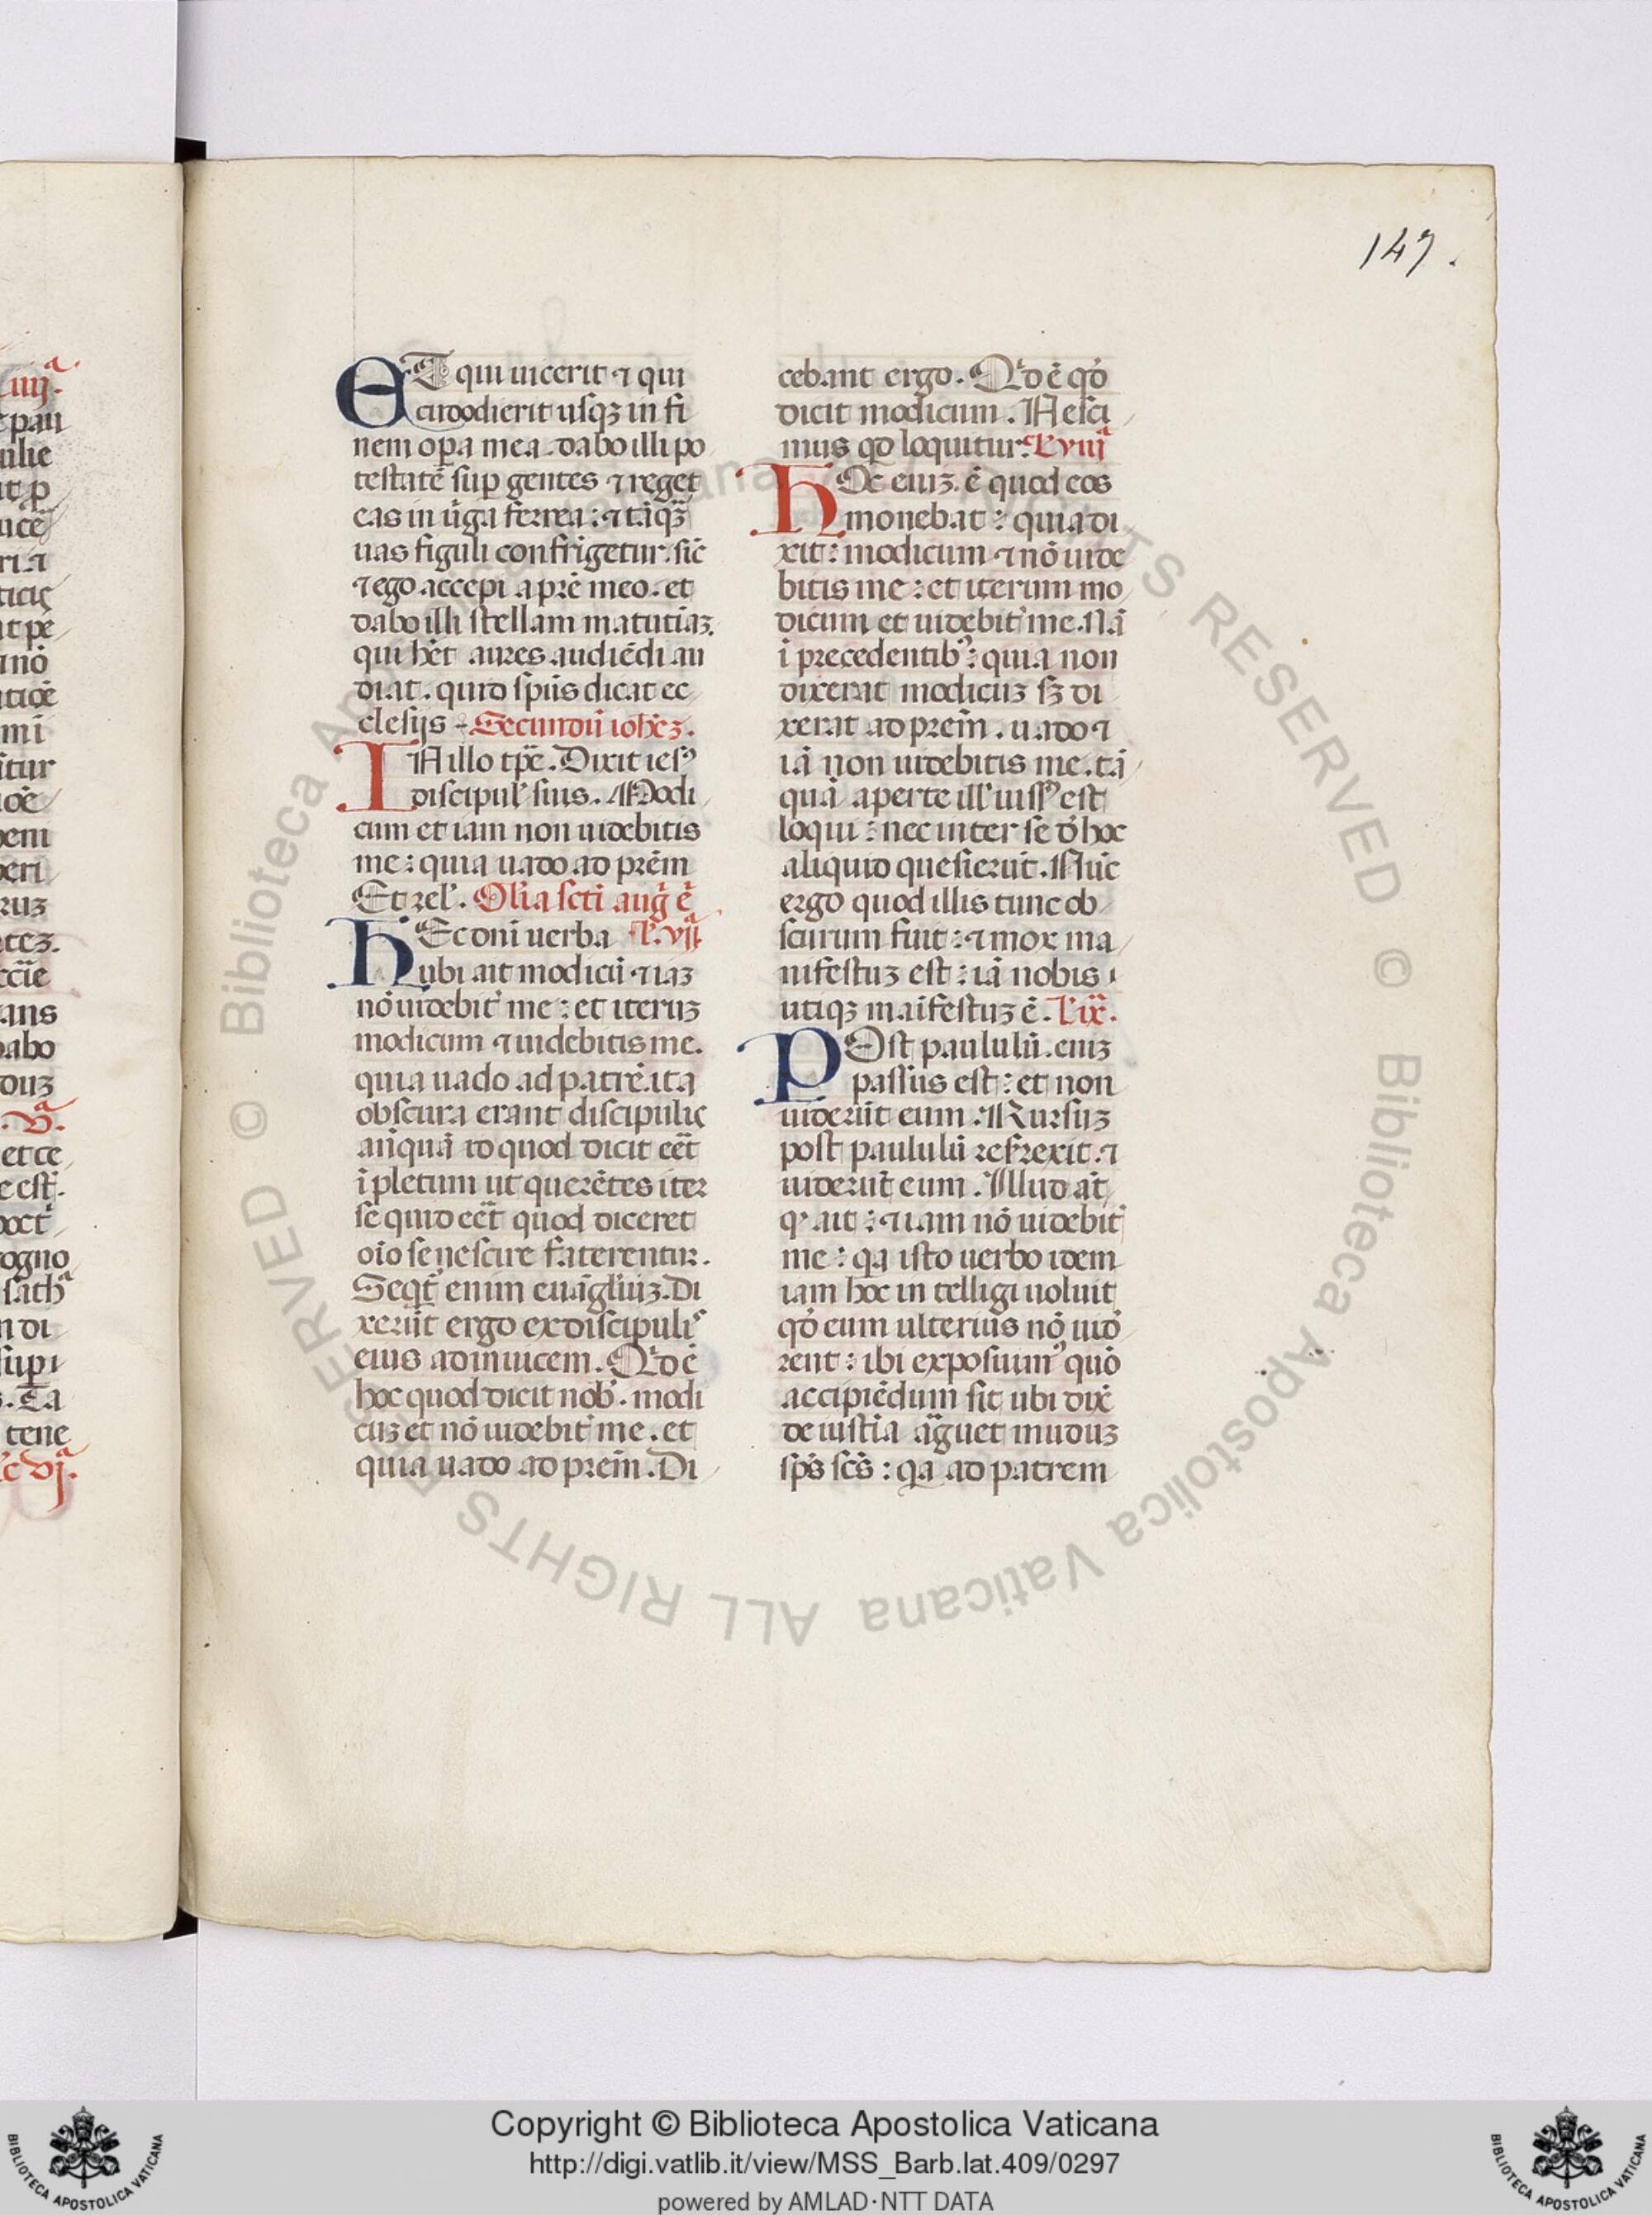 149.
ET qui uicerit ⁊ qui
custodierit usq3 in fi
nem opa mea. dabo illi po
testatē sup gentes ⁊ reget
eas in uga ferrea: ⁊ tāq3
uas figuli confrīgetur. sic̄
⁊ ego accepi a prē meo. et
dabo illi stellam matutīa3.
qui hēt aures audiēdi au
diat. quid spūs dicat ec
clesijs. Secundū ioħe3.
IN illo tp̄e. Dixit ies9
discipul' suis. Modi
cum et iam non uidebitis
me: quia uado ad prēm
Et rel'. Olia scti aug ē
HEc dni uerba l'. vija
ubi ait modicū ⁊ ia3
nō uidebit' me: et iteru3
modicum ⁊ uidebitis me.
quia uado ad patrē. ita
obscura erant discipulis
anquā id quod dicit eēt
īpletum ut querētes iter
se quid eēt quod diceret
oīo se nescire faterentur.
Seqt' enim euāgliu3. Di
xerūt ergo ex discipulis
eius adinuicem. Qd ē
hoc quod dicit nob'. modi
cu3 et nō uidebit' me. et
quia uado ad prēm. Di
cebant ergo. Qd ē qd'
dicit modicum. Nesci
mus qd loquitur. l'. viija
HOc eni3. ē quod eos
monebat: quia di
xit: modicum ⁊ nō uide
bitis me: et iterum mo
dicum et uidebit' me. Nā
ī precedentib9: quia non
dixerat modicu3 s3 di
xerat ad prēm. uado ⁊
iā non uidebitis me. tā
quā aperte ill' uiss9 est
loqui: nec inter se d' hoc
aliquid quesierūt. Nūc
ergo quod illis tunc ob
scurum fuit: ⁊ mox ma
nifestu3 est: iā nobis
utiq3 maīfestu3 ē. l'. ixa.
POst paululū. eni3
passus est: et non
uiderūt eum. Rursu3
post paululū resrexit. ⁊
uiderūt eum. Illud āt
q ait: ⁊ iam nō uidebit'
me: qa isto uerbo idem
iam hoc intelligi uoluit
qd' eum ulterius nō uid'
rent: ibi exposuim9 quō
accipiēdum sit ubi dix̄
de iustīa aguet mūdu3
sps scs: qa ad patrem
Copyright © Biblioteca Apostolica Vaticana
http://digi.vatlib.it/view/MSS_Barb.lat.409/0297
powered by AMLAD·NTT DATA
© Biblioteca Apostolica Vaticana ALL RIGHTS RESERVED
BIBLIOTECA APOSTOLICA VATICANA
BIBLIOTECA APOSTOLICA VATICANA